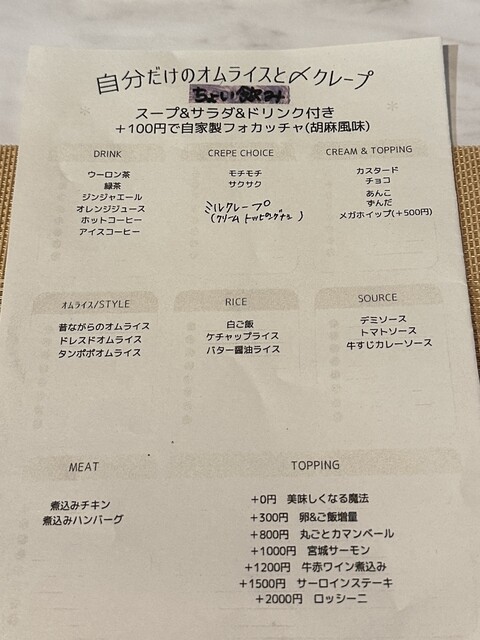 自分だけのオムライスと〆クレープ
ちょい飲み
スープ&サラダ&ドリンク付き
+100円で自家製フォカッチャ(胡麻風味)
DRINK
ウーロン茶
緑茶
ジンジャエール
オレンジジュース
ホットコーヒー
アイスコーヒー
CREPE CHOICE
モチモチ
サクサク
ミルクレープ
(クリームトッピングナシ)
CREAM & TOPPING
カスタード
チョコ
あんこ
ずんだ
メガホイップ(+500円)
オムライス/STYLE
昔ながらのオムライス
ドレスドオムライス
タンポポオムライス
RICE
白ご飯
ケチャップライス
バター醤油ライス
SOURCE
デミソース
トマトソース
牛すじカレーソース
MEAT
煮込みチキン
煮込みハンバーグ
TOPPING
+0円 美味しくなる魔法
+300円 卵&ご飯増量
+800円 丸ごとカマンベール
+1000円 宮城サーモン
+1200円 牛赤ワイン煮込み
+1500円 サーロインステーキ
+2000円 ロッシーニ